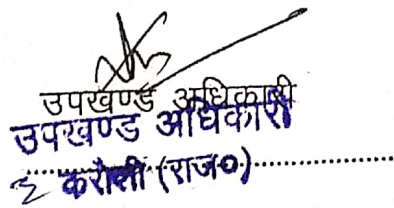 उपखण्ड अधिकारी
उपखण्ड अधिकारी
करौली (राज०)